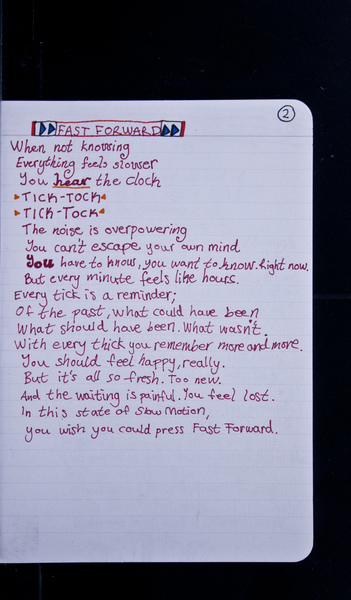 2
FAST FORWARD
When not knowing
Everything feels slower
You hear the clock
TICK-TOCK
TICK-TOCK
The noise is overpowering
You can't escape your own mind
You have to know, you want to know. Right now.
But every minute feels like hours.
Every tick is a reminder;
Of the past, what could have been
What should have been. What wasn't.
With every thick you remember more and more.
You should feel happy, really.
But it's all so fresh. Too new.
And the waiting is painful. You feel lost.
In this state of slow motion,
you wish you could press Fast Forward.